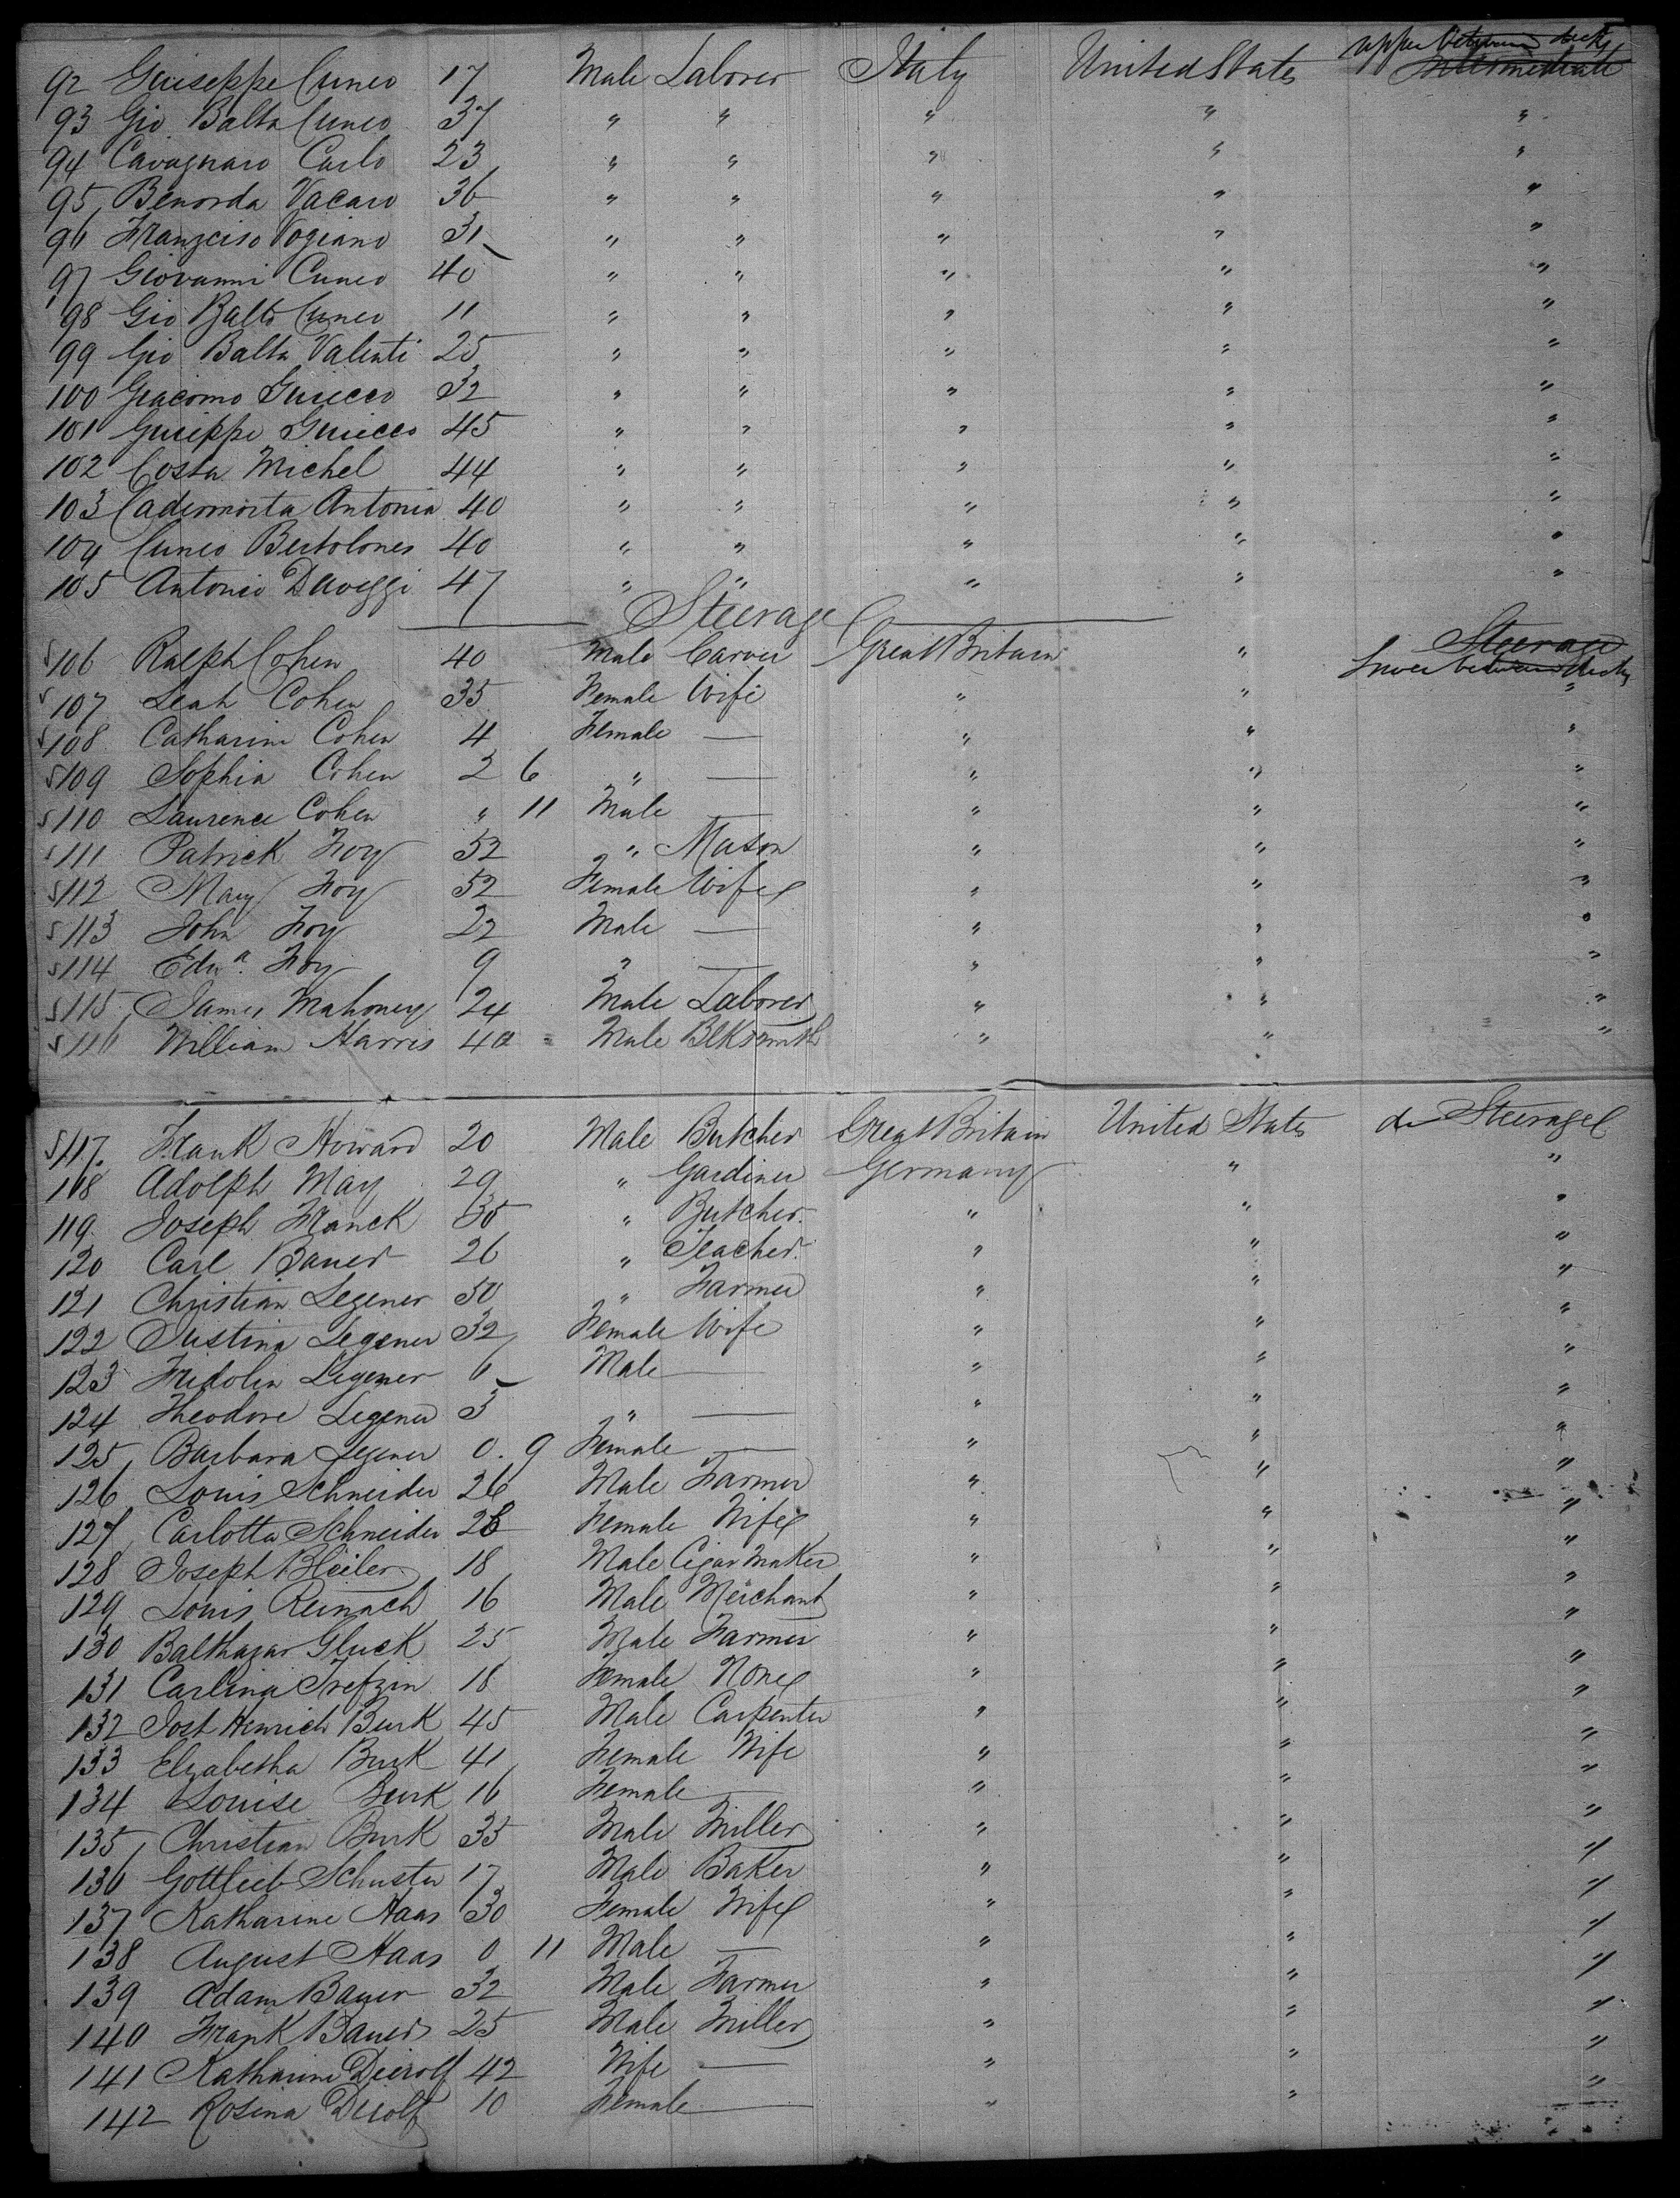 92 Guiseppe Cuneo 17 Male Laborer Italy United States upper between decks Intermediate
93 Gio Balta Cuneo 37 " " " " "
94 Cavagnaro Carlo 23 " " " " "
95 Benorda Vacaro 36 " " " " "
96 Franzciso Vogiano 31 " " " " "
97 Giovanni Cuneo 40 " " " " "
98 Gio Balto Cuneo 11 " " " " "
99 Gio Balta Valenti 25 " " " " "
100 Giacomo 32 " " " " "
101 Guiseppe 45 " " " " "
102 Costa Michel 44 " " " " "
103 Antonia 40 " " " " "
104 Cuneo Bertolones 40 " " " " "
105 Antonio Daveggi 47 " " " " "
Steerage
106 Ralph Cohen 40 Male Carver Great Britain " Steerage
lower between decks
107 Leah Cohen 35 Female Wife " " "
108 Catharine Cohen 4 Female — " " "
109 Sophia Cohen 2 6 " — " " "
110 Laurence Cohen " 11 Male — " " "
111 Patrick Foy 52 " Mason " " "
112 Mary Foy 52 Female Wife " " "
113 John Foy 22 Male — " " "
114 Edwa. Foy 9 " — " " "
115 James Mahoney 24 Male Laborer " " "
116 William Harris 40 Male Blksmith " " "
117. Frank Howard 20 Male Butcher Great Britain United States do Steerage
118 Adolph May 29 " Gardiner Germany " "
119. Joseph Franck 35 " Butcher. " " "
120 Carl Bauer 26 " Teacher. " " "
121 Christian Legener 30 " Farmer " " "
122 Justina Legener 32 Female Wife " " "
123 Fridolin Legener 6 Male — " " "
124 Theodore Legener 5 " — " " "
125 Barbara Legener 0. 9 Female — " " "
126 Louis Schneider 26 Male Farmer " " "
127 Carlotta Schneider 26 Female Wife " " "
128 Joseph Bleiler 18 Male Cigar Maker " " "
129 Louis Reinach 16 Male Merchant " " "
130 Balthazar Gluck 25 Male Farmer " " "
131 Carlina Trefzin 18 Female None " " "
132 Jost Henrich Burk 45 Male Carpenter " " "
133 Elizabetha Burk 41 Female Wife " " "
134 Louise Burk 16 Female — " " "
135 Christian Burk 35 Male Miller " " "
136 Gottlieb Schuster 17 Male Baker " " "
137 Katharine Haas 30 Female Wife " " "
138 August Haas 0 11 Male — " " "
139 Adam Bauer 32 Male Farmer " " "
140 Frank Bauer 25 Male Miller " " "
141 Katharine Dierolf 42 Wife — " " "
142 Rosina Dierolf 10 Female — " " "